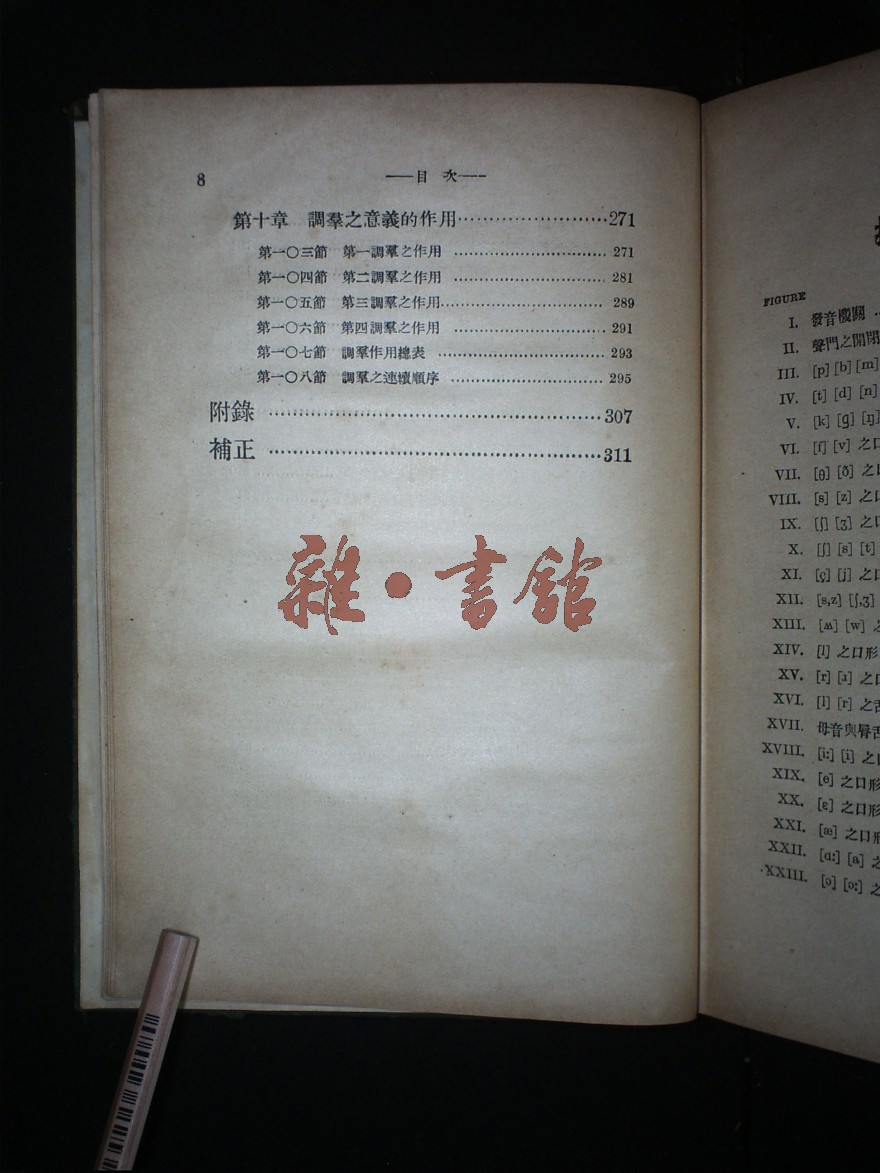 8 ——目 次——
第十章 調羣之意義的作用························271
第一〇三節 第一調羣之作用 ······························ 271
第一〇四節 第二調羣之作用 ······························ 281
第一〇五節 第三調羣之作用································ 289
第一〇六節 第四調羣之作用 ······························ 291
第一〇七節 調羣作用總表 ································· 293
第一〇八節 調羣之連續順序 ······························ 295
附錄 ·······················································307
補正 ·······················································311
雜·書館
FIGURE
I. 發音機關
II. 聲門之開閉
III. [p] [b] [m]
IV. [t] [d] [n]
V. [k] [g] [ŋ]
VI. [f] [v] 之口
VII. [θ] [ð] 之
VIII. [s] [z] 之
IX. [ʃ] [ʒ] 之口
X. [ʃ] [s] [t]
XI. [ç] [j] 之口
XII. [s,z] [ʃ,ʒ]
XIII. [ʍ] [w] 之
XIV. [l] 之口形
XV. [r] [ɹ] 之口
XVI. [l] [r] 之舌
XVII. 母音與脣舌
XVIII. [i:] [i] 之口
XIX. [e] 之口形
XX. [ɛ] 之口形
XXI. [æ] 之口形
XXII. [ɑ:] [a] 之
XXIII. [ɔ] [ɔ:] 之